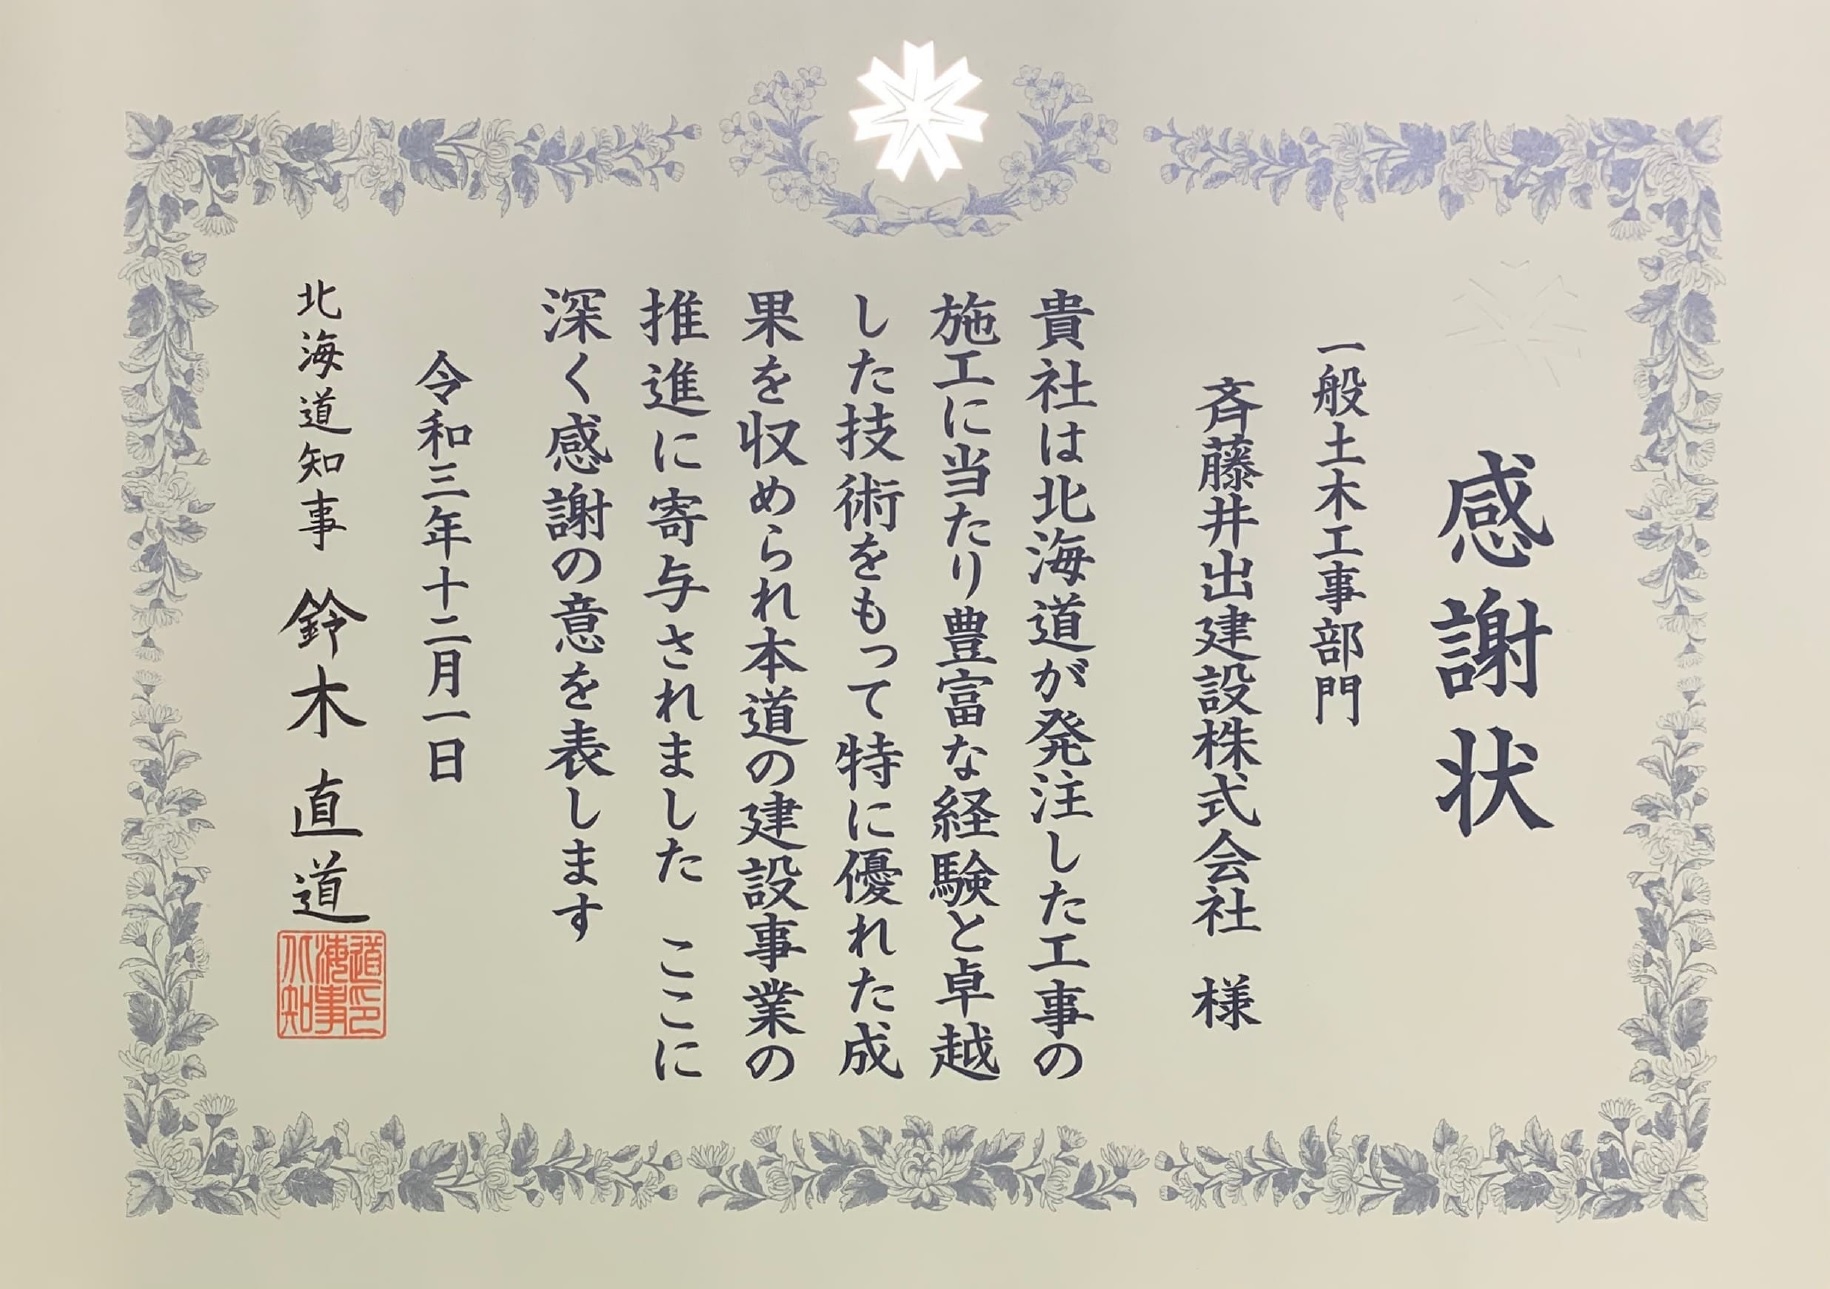 感謝状
一般土木工事部門
斉藤井出建設株式会社 様
貴社は北海道が発注した工事の
施工に当たり豊富な経験と卓越
した技術をもって特に優れた成
果を収められ本道の建設事業の
推進に寄与されました ここに
深く感謝の意を表します
令和三年十二月一日
北海道知事 鈴木 直道
道印
海事
北知